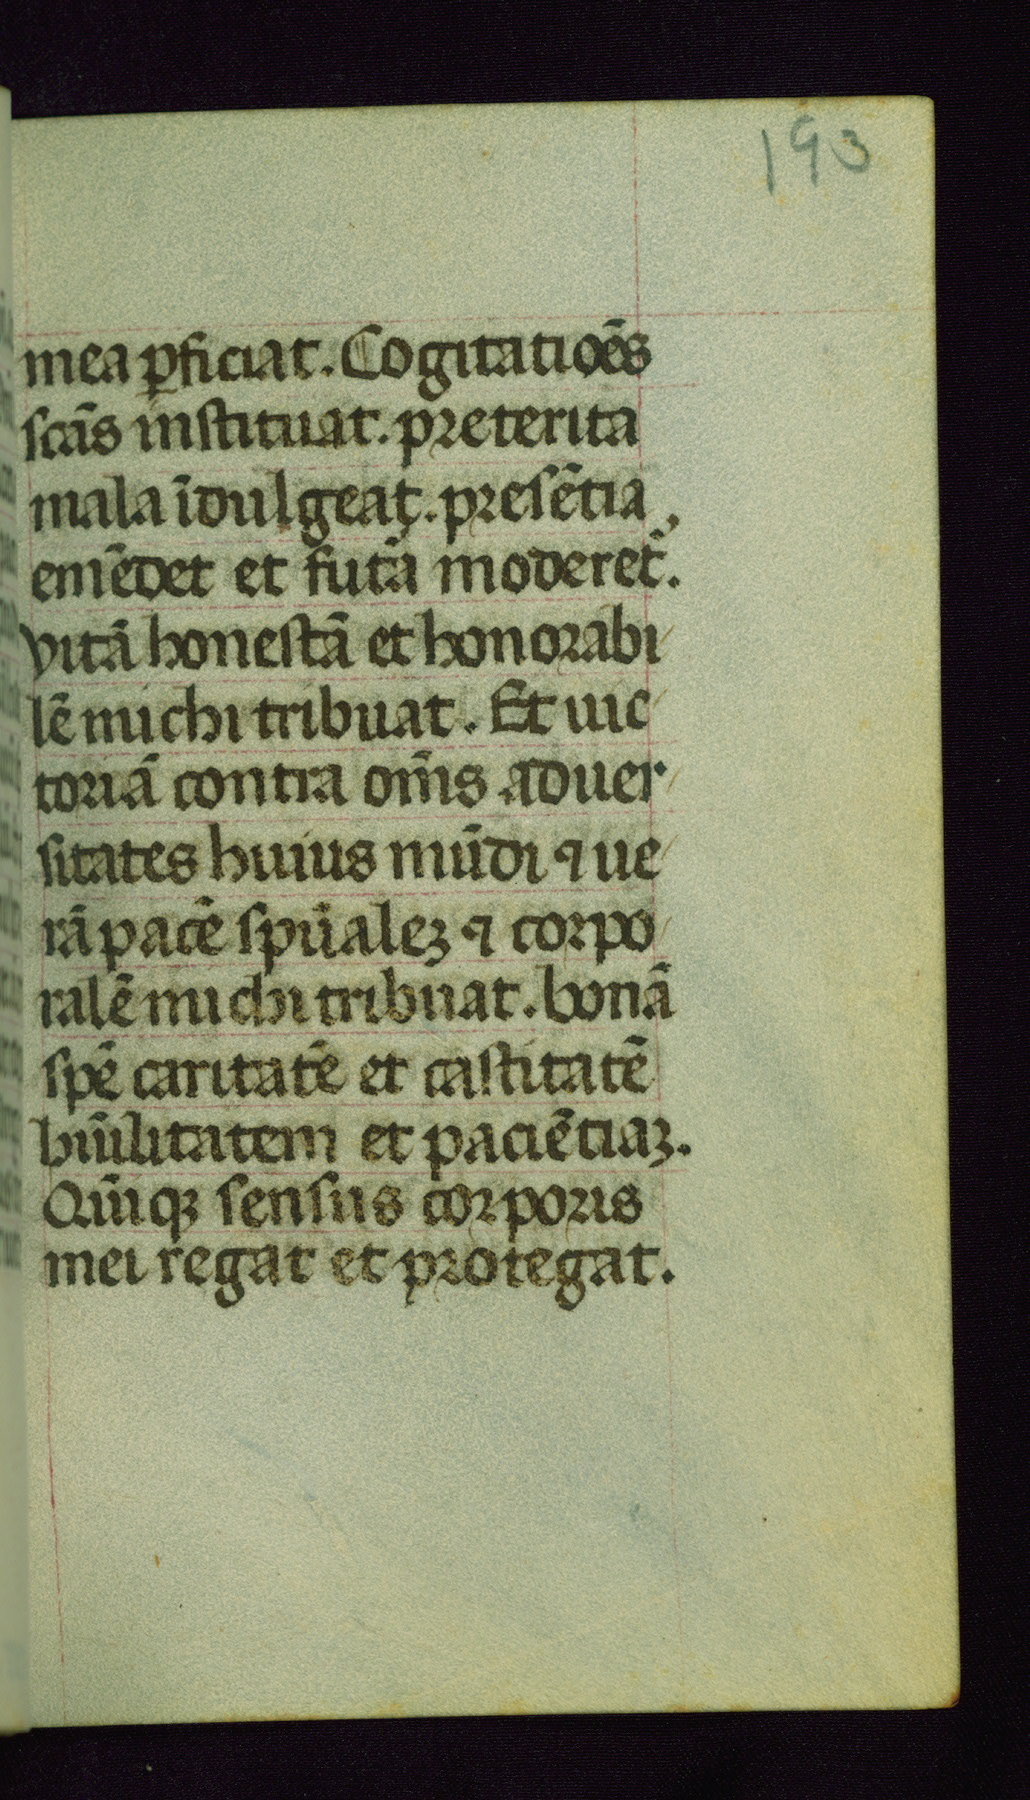 193
mea ꝑficiat. Cogitatioēs
scās instituat. preterita
mala īdulgeat. presētia
emēdet et futā moderet᷑.
vitā honestā et honorabi
lē michi tribuat. Et uic
toriā contra om̄s aduer
sitates huius mūdi ⁊ ue
rā pacē spūaleꝫ ⁊ corpo
ralē michi tribuat. bonā
spē caritatē et castitatē
hūilitatem et paciētiaꝫ.
Qūiqꝫ sensus corporis
mei regat et protegat.